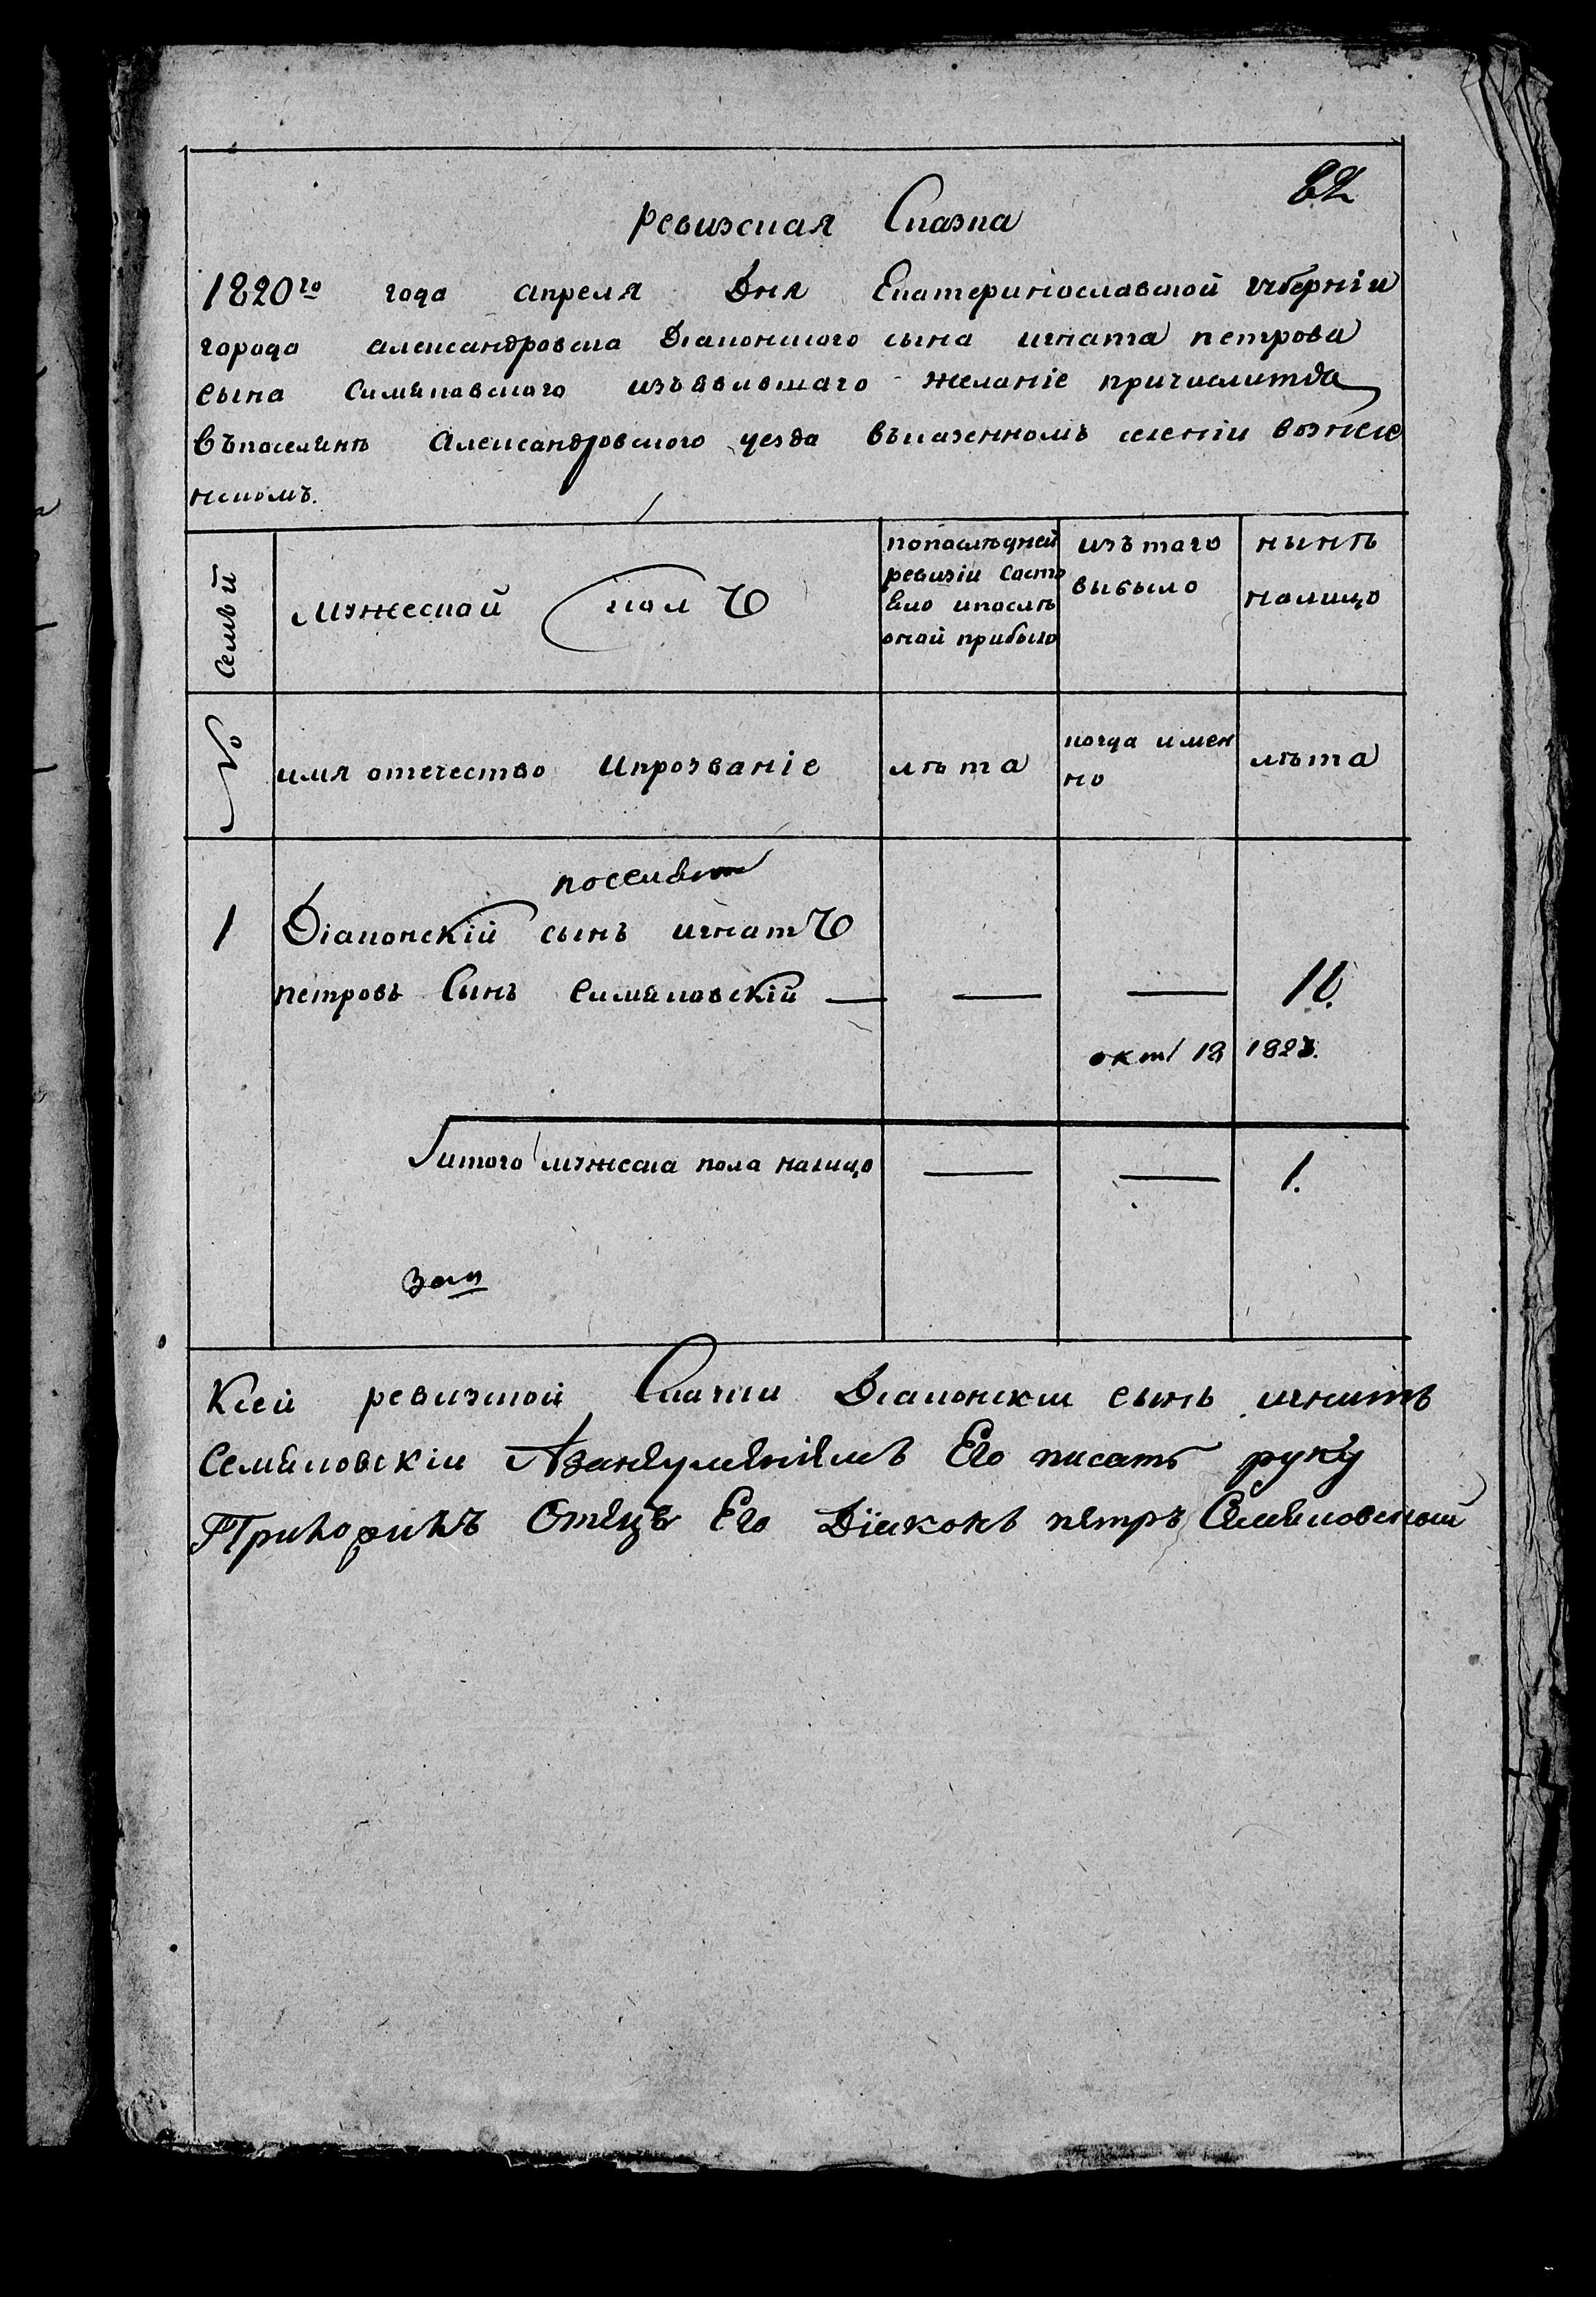 82
ревизская Сказка
1820го года апреля Дня Екатериносл­авской губерніи
города александровска Діаконского сына игната петрова
сына Симяновского изъявившаго желаніе причислитца
въпоселяне Александровского уезда въказенномъ селеніи возне
нскомъ.
Семьи мужескои полъ попослѣдней ревизіи состо яло ипослѣ оной прибыло изъ того выбыло нынѣ налицо
№ имя отечество ипрозваніе лѣта когда имен но лѣта
поселян
1 Діаконскій сынъ игнатъ
петровъ Сынъ Симяновскій — — — 16.
окт 18 1823.
итого мужеска пола налицо — — 1.
Ксей ревизской Скаски Діаконскии сынъ игнатъ
Семяновскіи Азанеумѣніемъ Его писать руку
Приложилъ Отецъ Его Діаконъ петръ Семяновскои